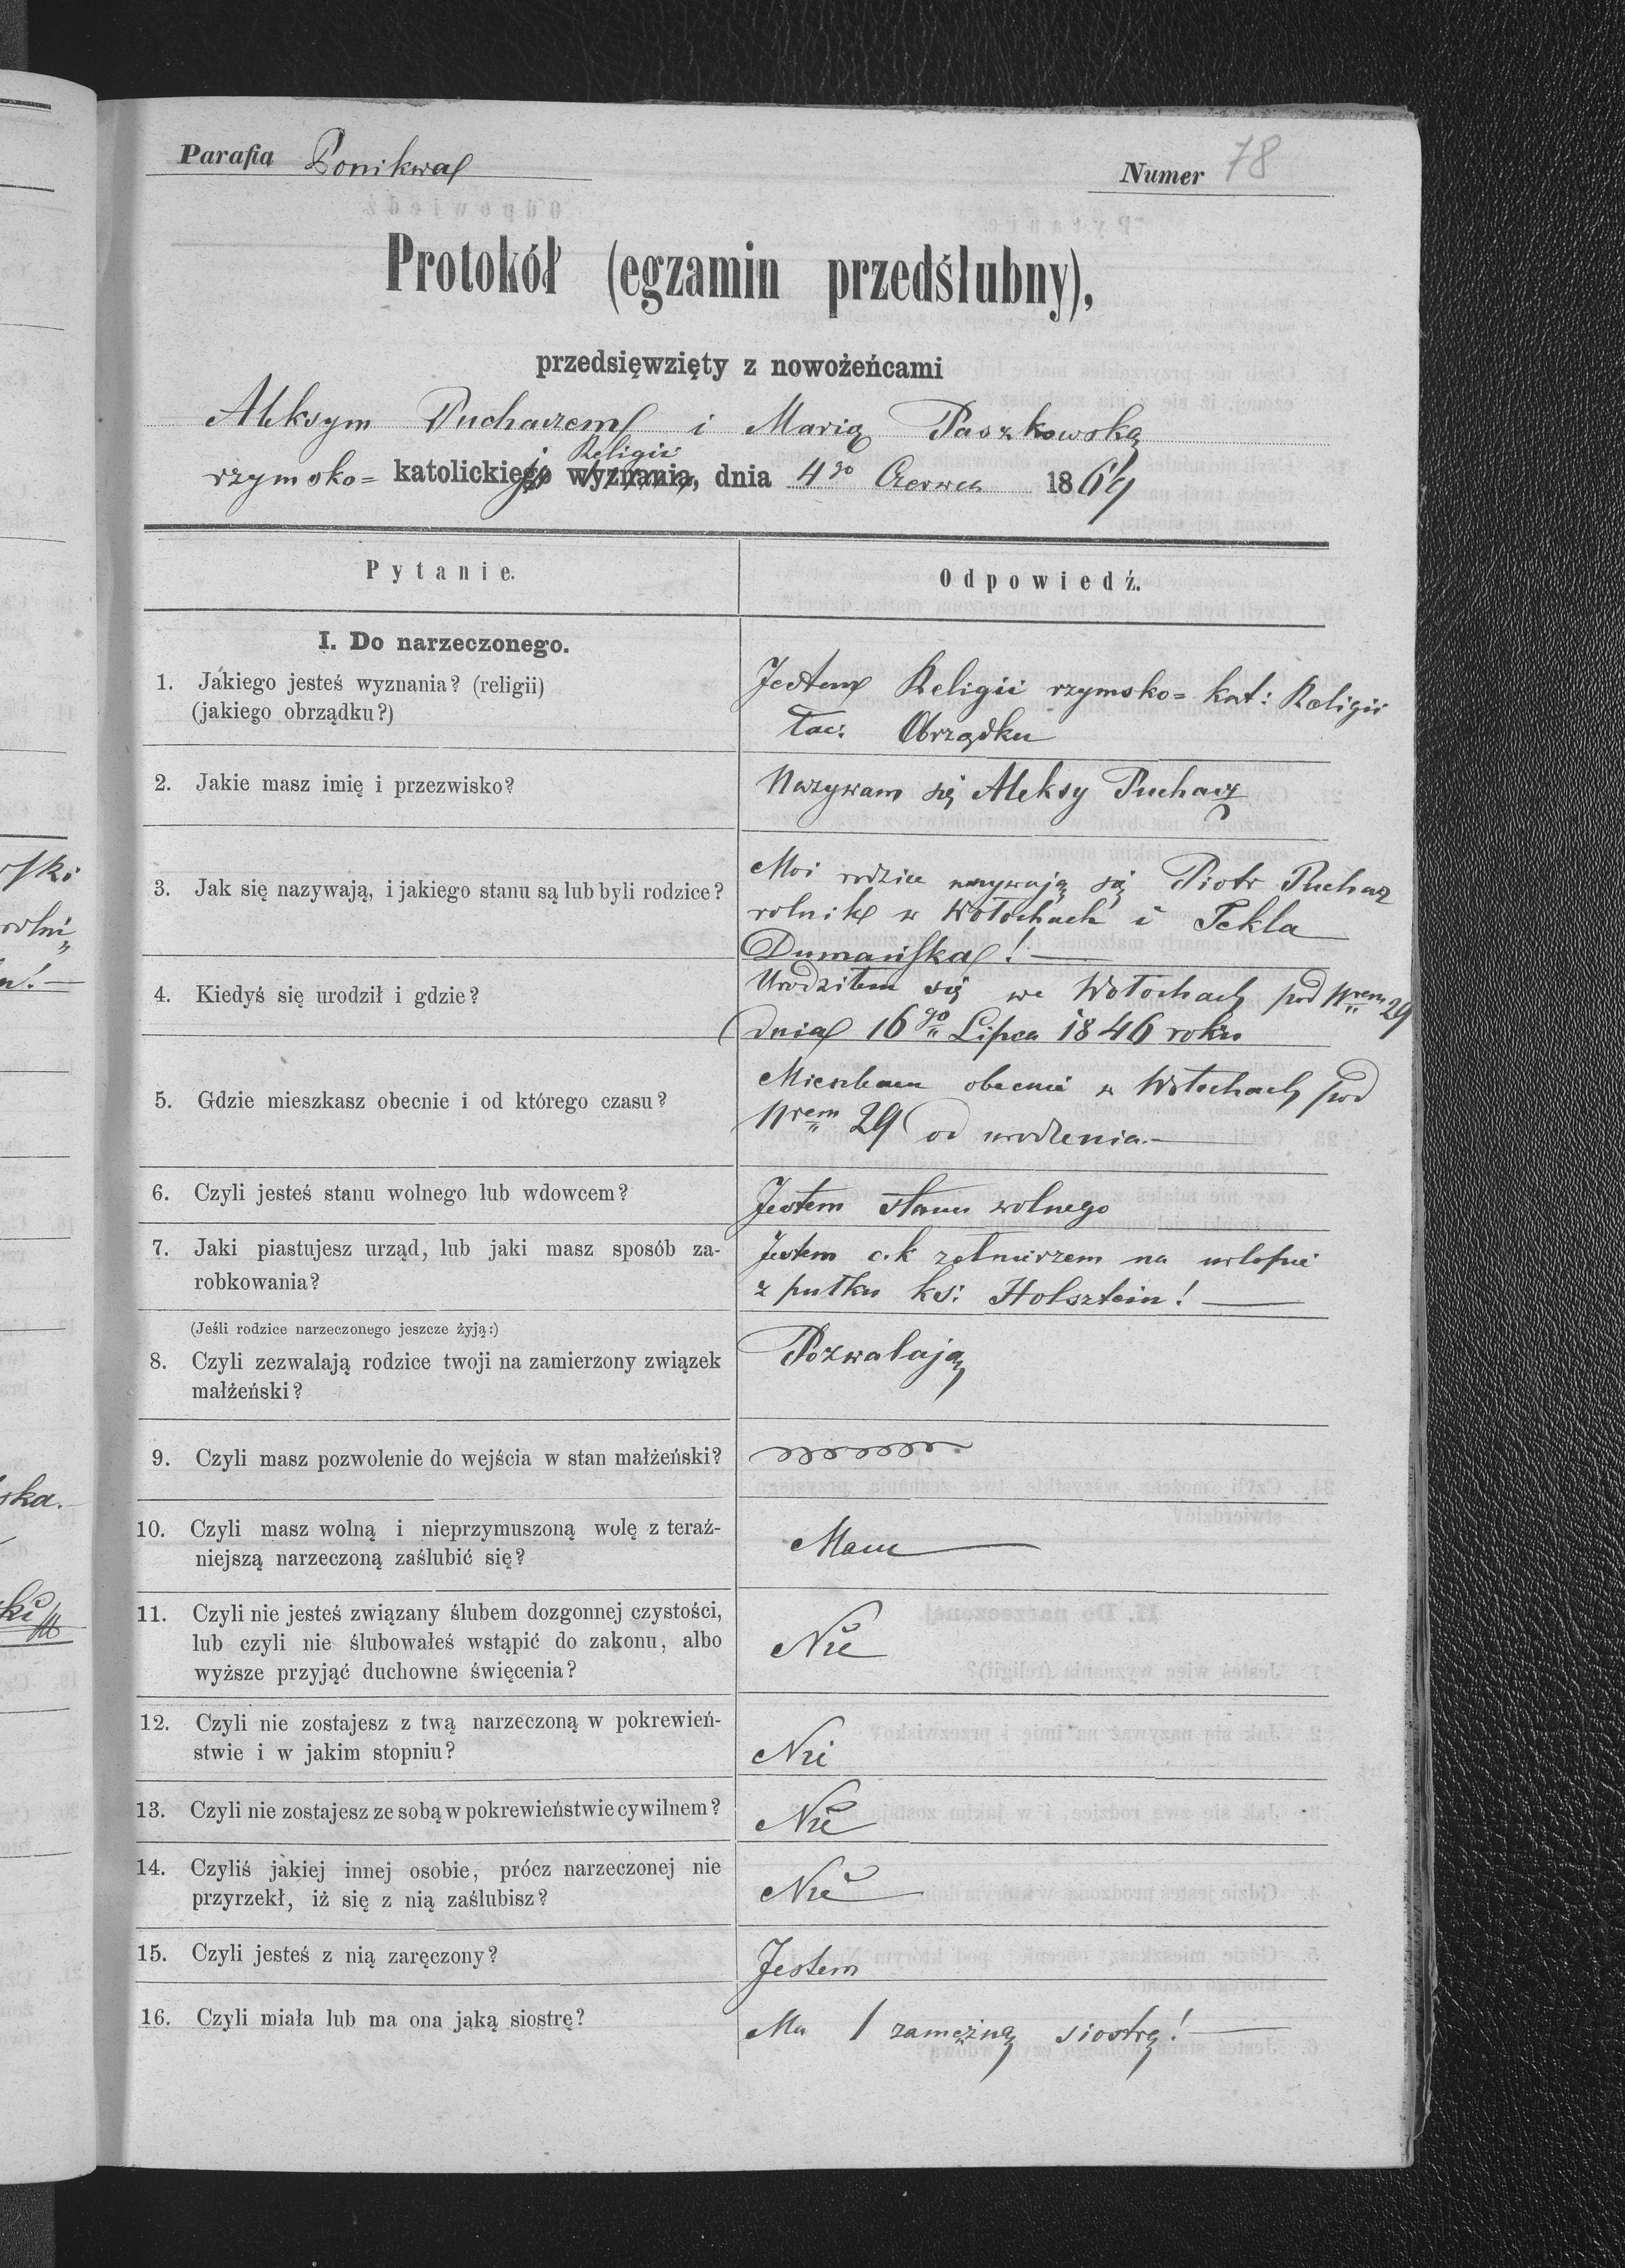 Parafia Ponikwa
Numer 78
Protokół (egzamin przedślubny),
przedsięwzięty z nowożeńcami
Aleksym Puchaczem i Marią Paszkowską
Religii
rzymsko= katolickiej wyznania, dnia 4go Czerwca 1869
Pytanie.
Odpowiedź.
I. Do narzeczonego.
1. Jakiego jesteś wyznania? (religii)
(jakiego obrządku?)
Jestem Religii rzymsko= kat: Religii
łac: Obrządku
2. Jakie masz imię i przezwisko?
Nazywam się Aleksy Puchacz
3. Jak się nazywają, i jakiego stanu są lub byli rodzice?
Moi rodzice nazywają się Piotr Puchacz
rolnik w Wołochach i Tekla
Dumańska!
4. Kiedyś się urodził i gdzie?
Urodziłem się we Wołochach pod Nrem 29
dnia 16go Lipca 1846 roku
5. Gdzie mieszkasz obecnie i od którego czasu?
Mieszkam obecnie w Wołochach pod
Nrem 29 od urodzenia.—
6. Czyli jesteś stanu wolnego lub wdowcem?
Jestem stanu wolnego
7. Jaki piastujesz urząd, lub jaki masz sposób za-
robkowania?
Jestem c.k żołnierzem na urlopie
z pułku ks: Holsztein! —
(Jeśli rodzice narzeczonego jeszcze żyją:)
8. Czyli zezwalają rodzice twoji na zamierzony związek
małżeński?
Pozwalają
9. Czyli masz pozwolenie do wejścia w stan małżeński?
10. Czyli masz wolną i nieprzymuszoną wolę z teraź-
niejszą narzeczoną zaślubić się?
Mam
11. Czyli nie jesteś związany ślubem dozgonnej czystości,
lub czyli nie ślubowałeś wstąpić do zakonu, albo
wyższe przyjąć duchowne święcenia?
Nie
12. Czyli nie zostajesz z twą narzeczoną w pokrewień-
stwie i w jakim stopniu?
Nie
13. Czyli nie zostajesz ze sobą w pokrewieństwie cywilnem?
Nie
14. Czyliś jakiej innej osobie, prócz narzeczonej nie
przyrzekł, iż się z nią zaślubisz?
Nie
15. Czyli jesteś z nią zaręczony?
Jestem
16. Czyli miała lub ma ona jaką siostrę?
Ma 1 zamężną siostrę! —